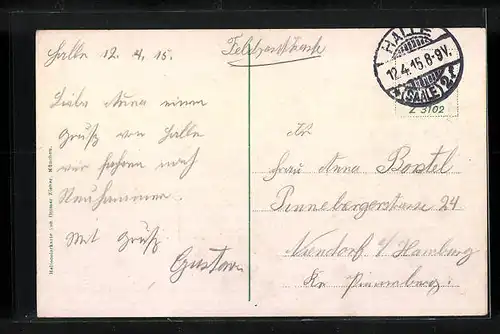 Halle 12. 4. 15.
Feldpostkarte
HALLE
12.4.15.8-9V.
* (SAALE) 2 f
Z 3102
Liebe Anna einen
Gruß von Halle
wir fahren nach
Neuhammer.
Mit Gruß
Gustav
An
Frau Anna Bostel
Pinnebergerstrasse 24
Niendorf b/ Hamburg
Kr. Pinneberg.
München.